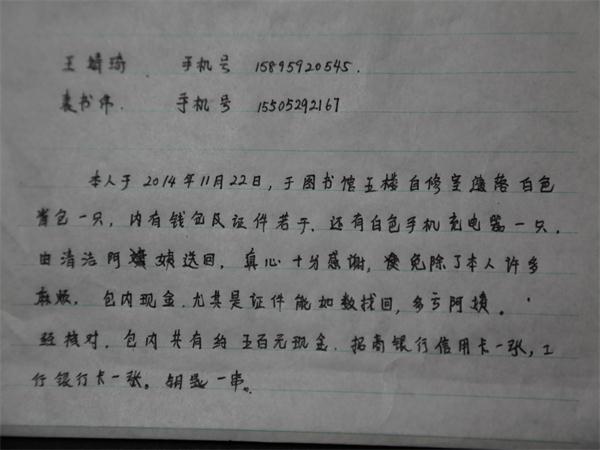 王婧琦 手机号 15895920545.
袁书伟. 手机号 15505292167
本人于2014年11月22日,于图书馆五楼自修室遗落白色
背包一只,内有钱包及证件若干.还有白色手机充电器一只.
由清洁阿姨送回,真心十分感谢,免除了本人许多
麻烦.包内现金.尤其是证件能如数找回,多亏阿姨。
经核对.包内共有约五百元现金.招商银行信用卡一张,工
行银行卡一张。钥匙一串。